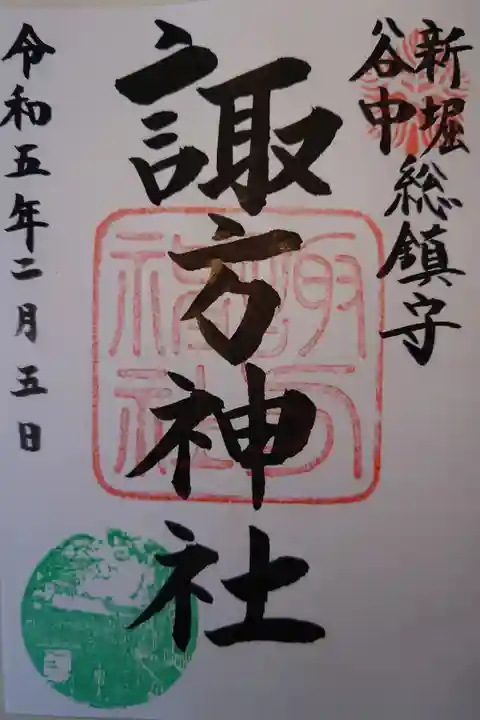 新堀
谷中
総鎮守
諏方神社
諏方
神社
令和五年二月五日